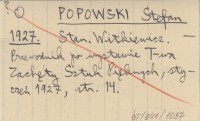 POPOWSKI Stefan
1927. Stan. Witkiewicz. —
Przewodnik po wystawie T-wa
Zachęty Sztuk Pięknych, sty-
czeń 1927, str. 14.